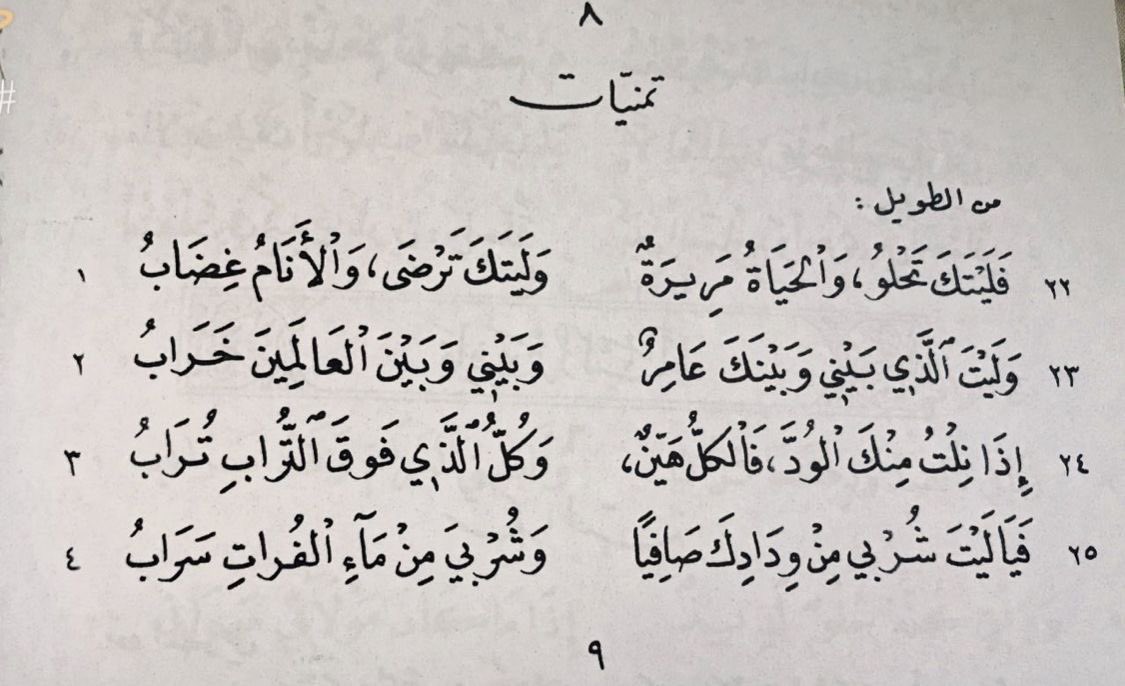 ٨
تمنيّات
من الطويل :
٢٢ فَلَيْتَكَ تَحْلُو، وَٱلْحَيَاةُ مَرِيرَةٌ وَلَيْتَكَ تَرْضَى، وَٱلْأَنَامُ غِضَابُ ١
٢٣ وَلَيْتَ ٱلَّذِي بَيْنِي وَبَيْنَكَ عَامِرٌ وَبَيْنِي وَبَيْنَ ٱلْعَالَمِينَ خَرَابُ ٢
٢٤ إِذَا نِلْتُ مِنْكَ ٱلْوُدَّ، فَٱلْكُلُّ هَيِّنٌ، وَكُلُّ ٱلَّذِي فَوقَ ٱلتُّرابِ تُرَابُ ٣
٢٥ فَيَا لَيْتَ شُرْبِي مِنْ وِدَادِكَ صَافِيًا وَشُرْبِيَ مِنْ مَآءِ ٱلْفُراتِ سَرَابُ ٤
٩